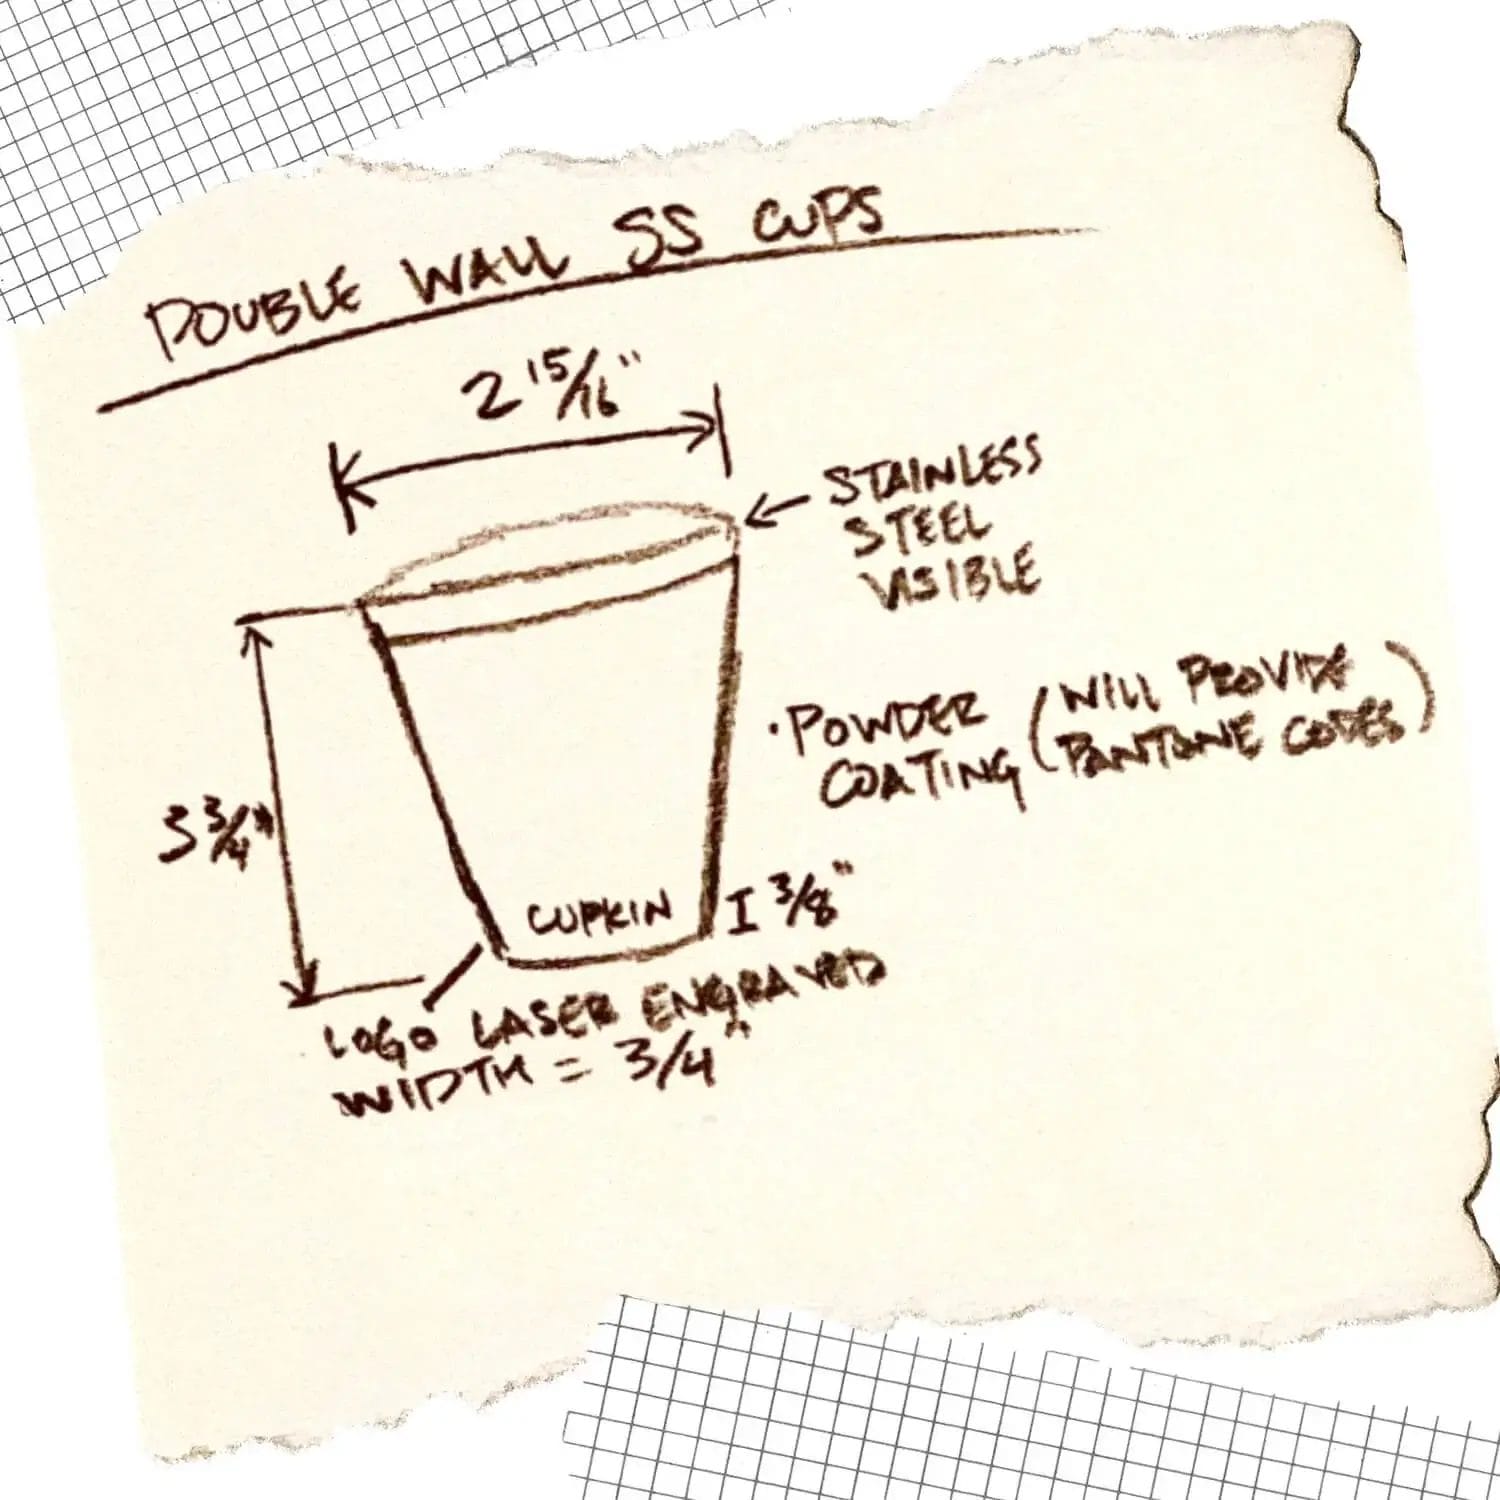 DOUBLE WALL SS CUPS
2 15/16"
STAINLESS
STEEL
VISIBLE
• POWDER
COATING
(WILL PROVIDE
PANTONE CODES)
3 3/4"
CUPKIN
3/8"
LOGO LASER ENGRAVED
WIDTH = 3/4"